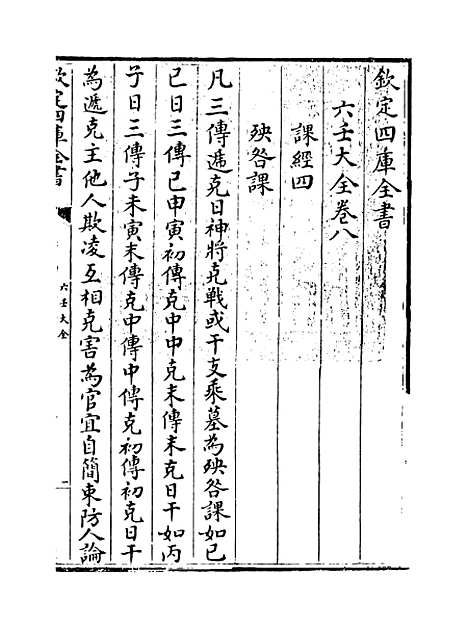 欽定四庫全書
六壬大全卷八
課經四
殃咎課
凡三傳遞克日神將克戰或干支乘墓為殃咎課如己
巳日三傳巳申寅初傳克中申克末傳末克日干如丙
子日三傳子未寅末傳克中傳中傳克初傳初克日干
為遞克主他人欺凌互相克害為官宜自簡束防人論
欽定四庫全書
六壬大全
一